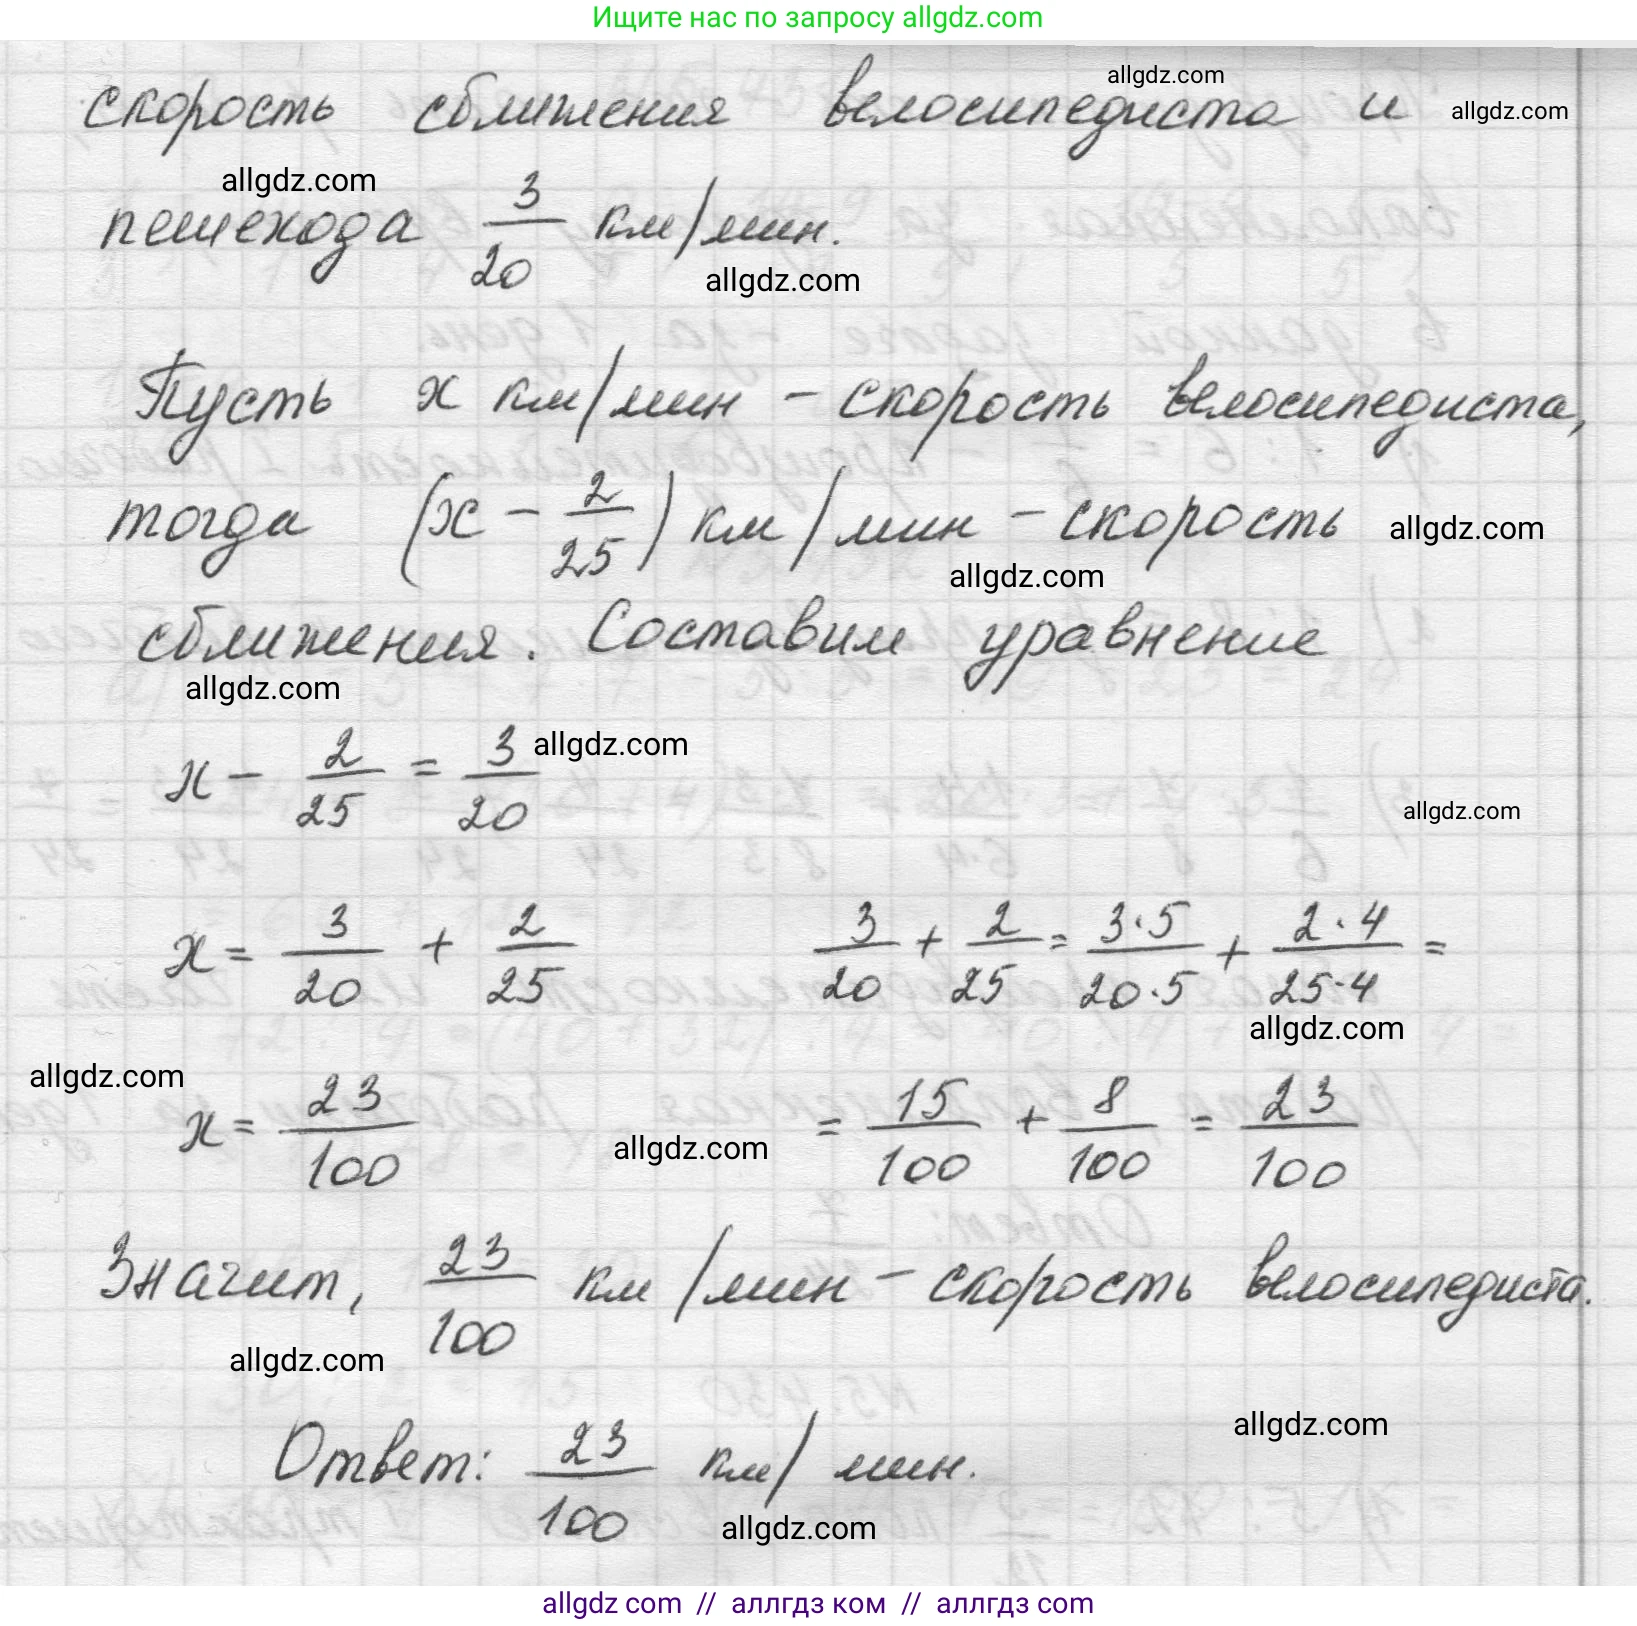 Ищите нас по запросу allgdz.com
allgdz.com
скорость сближения велосипедиста и allgdz.com
allgdz.com
пешехода 3/20 км/мин.
allgdz.com
Пусть x км/мин – скорость велосипедиста,
тогда (x - 2/25) км/мин – скорость allgdz.com
allgdz.com
сближения. Составим уравнение
allgdz.com
x - 2/25 = 3/20 allgdz.com
allgdz.com
x = 3/20 + 2/25 3/20 + 2/25 = 3·5/20·5 + 2·4/25·4 =
allgdz.com
allgdz.com
x = 23/100 = 15/100 + 8/100 = 23/100
allgdz.com
Значит, 23/100 км/мин – скорость велосипедиста.
allgdz.com
allgdz.com
Ответ: 23/100 км/мин.
allgdz.com
allgdz com // аллгдз ком // аллгдз com